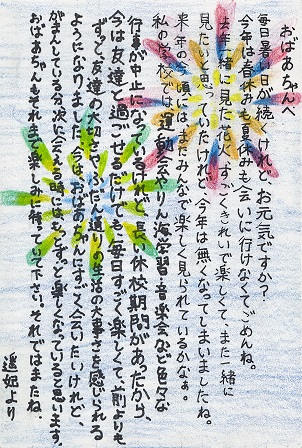 おばあちゃんへ
毎日暑い日が続くけれど、お元気ですか?
今年は春休みも夏休みも会いに行けなくてごめんね。
去年一緒に見た花火、すごくきれいで楽しくて、また一緒に
見たいと思っていたけれど、今年は無くなってしまいましたね。
来年の今頃にはまたみんなで楽しく見られているかなぁ。
私の学校では、運動会やりん海学習、音楽会など色々な
行事が中止になっているけれど、長い休校期間があったから、
今は友達と過ごせるだけでも、毎日すごく楽しくて、前よりも
ずっと、友達の大切さや、ふだん通りの生活の大事さを感じられる
ようになりました。今は、おばあちゃんにすごく会いたいけれど、
がまんしている分、次に会える時は、もっとずっと楽しくなっていると思います。
おばあちゃんもそれまで楽しみに待っていて下さい。それではまたね。
遥妃より